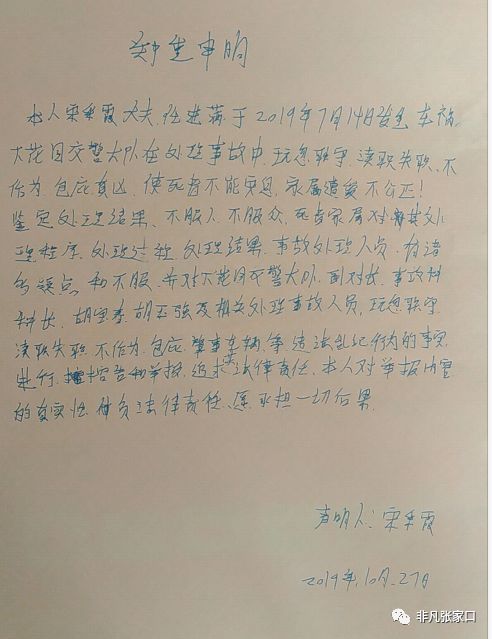 郑重申明
本人宋秉霞丈夫任进满于2019年7月14日发生车祸
大花园交警大队在处理事故中,玩忽职守,渎职失职、不
作为,包庇真凶,使死者不能安息,家属遭受不公正!
鉴定处理结果,不服人,不服众,死者家属对其处
理程序,处理过程,处理结果,事故处理人员,有诸
多疑点,和不服,并对下花园交警大队,副队长,事故科
科长,胡宝秀,胡玉强及相关处理事故人员,玩忽职守
渎职失职,不作为,包庇,肇事车辆,等违法乱纪行为的事实
进行,控告和举报,追求法律责任,本人对举报内容
的真实性 付负法律责任、愿承担一切后果
声明人:宋秉霞
2019年,10月,27日
非凡张家口